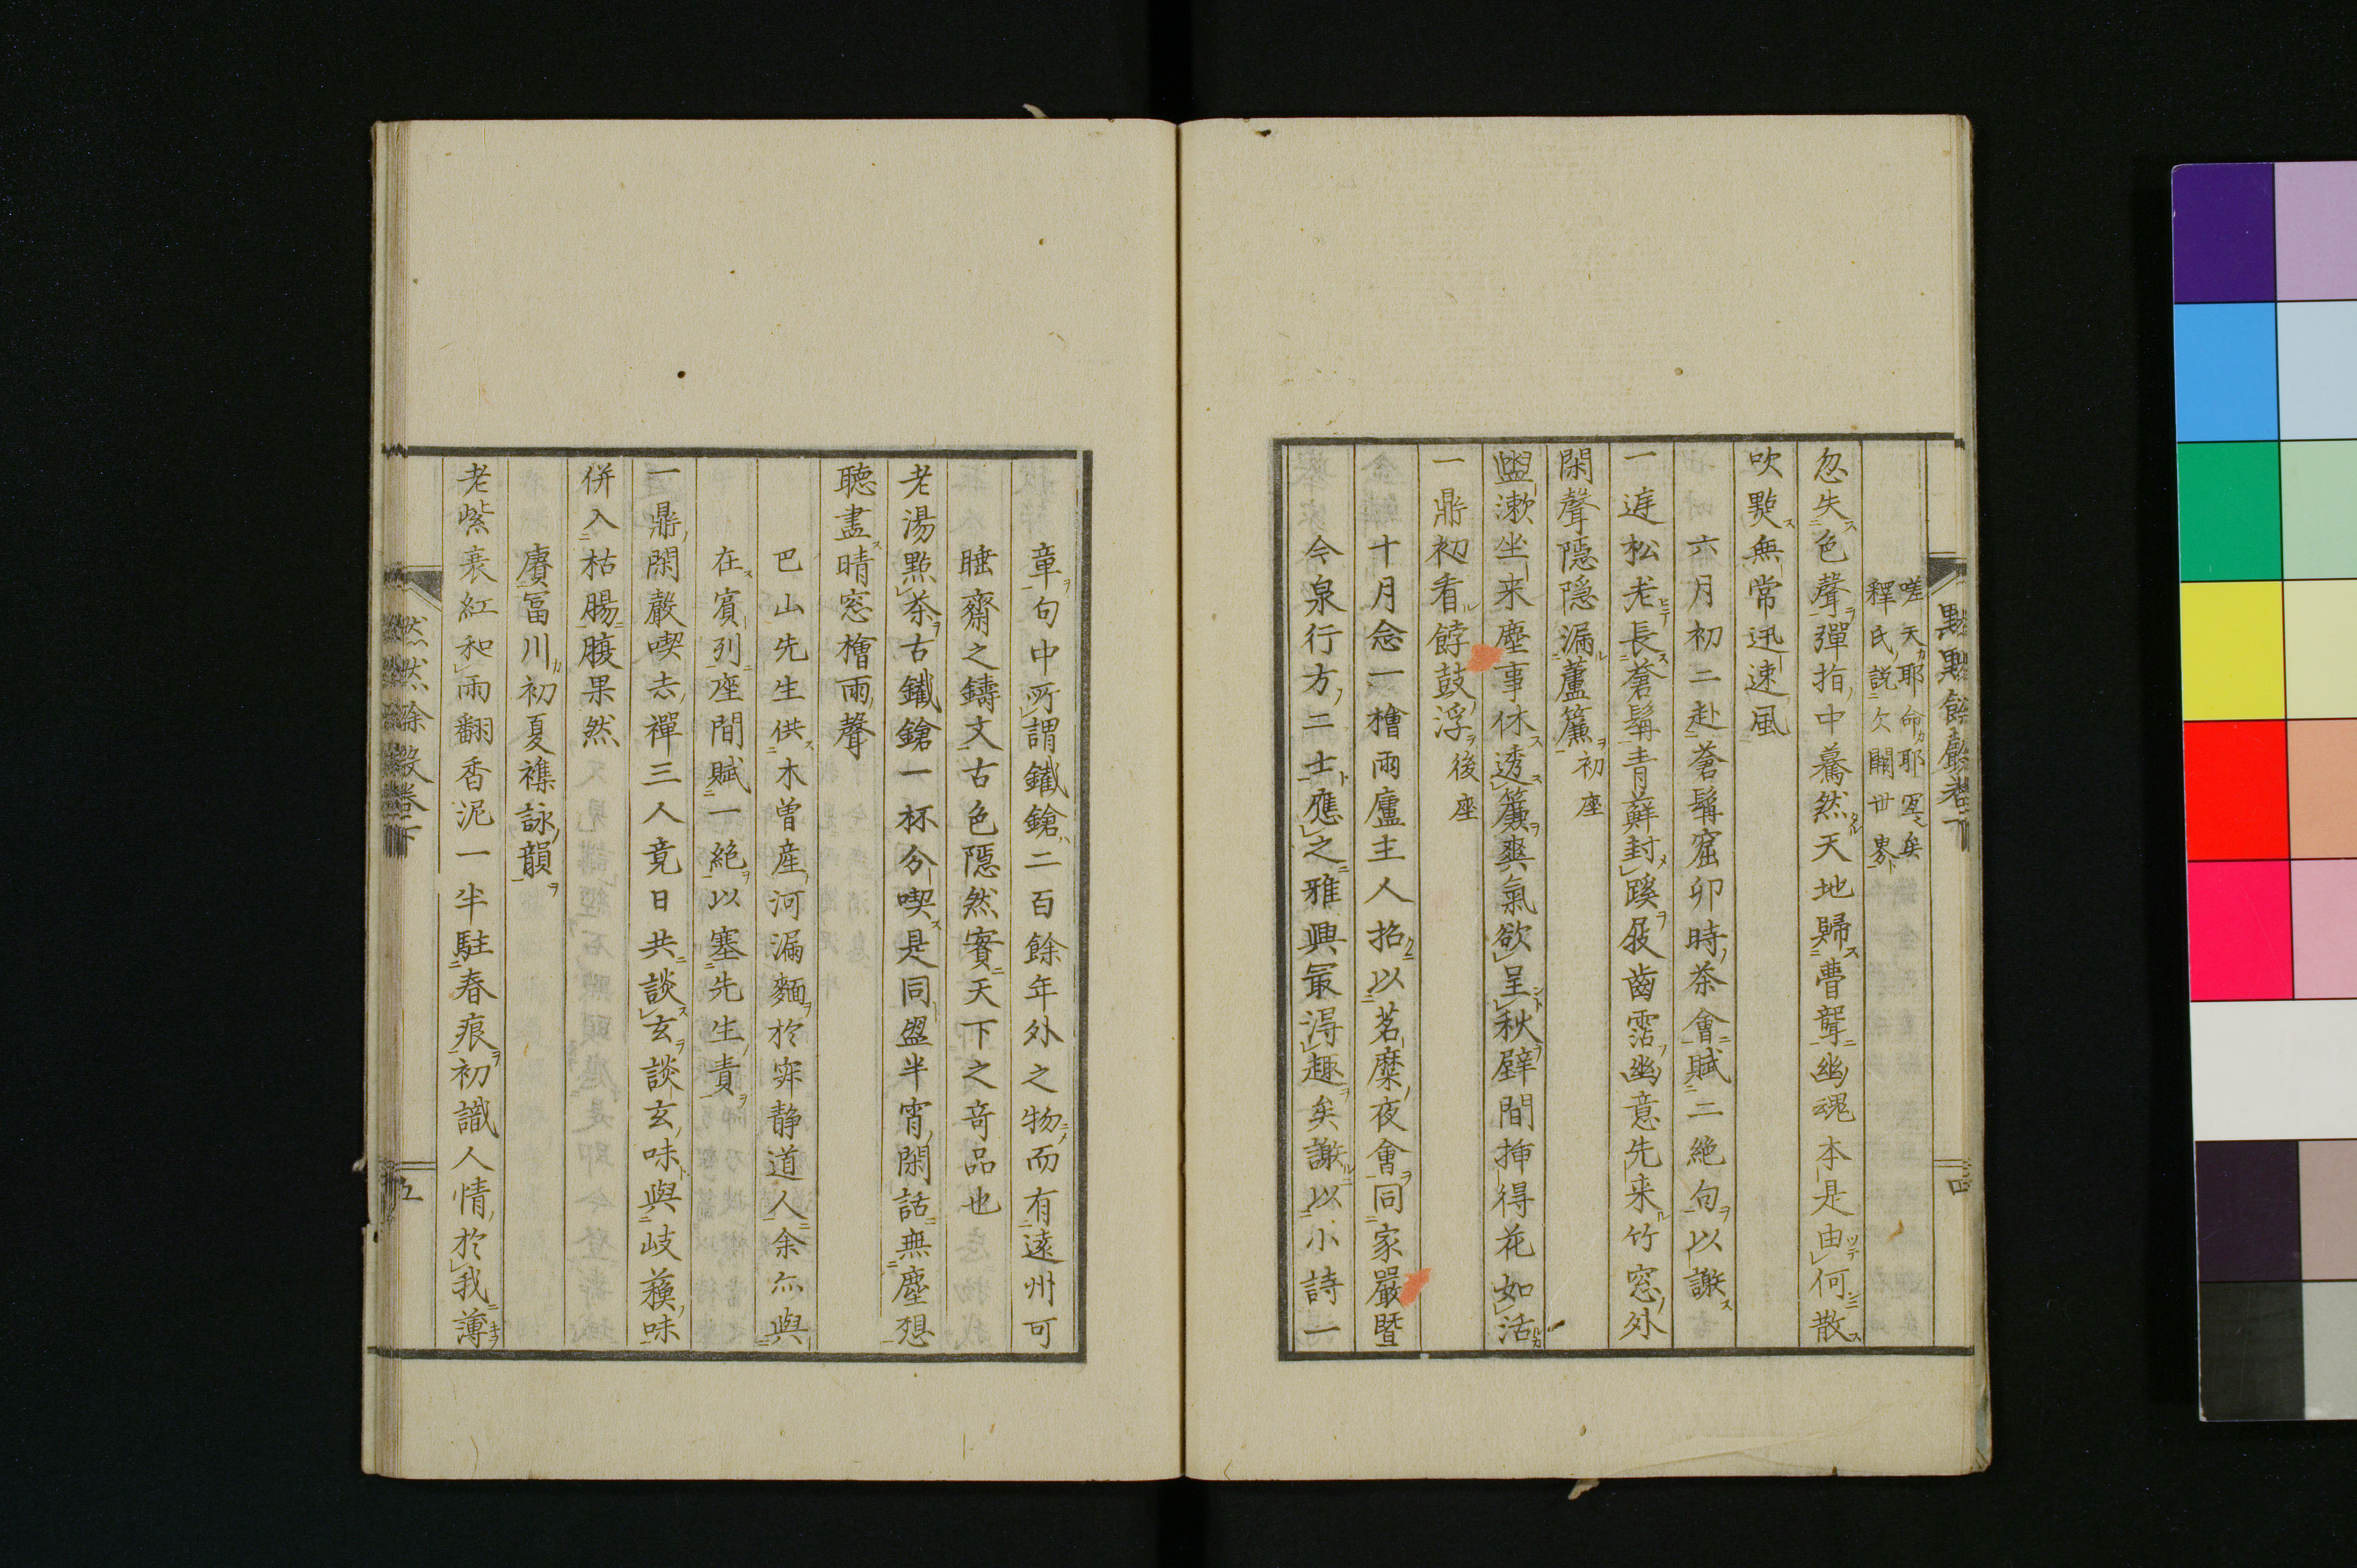 嗟天耶命耶冤矣
釋氏説欠闕世界
忽失色聲彈指中驀然天地歸曹聾幽魂本是由何散
吹㸃無常迅速風
六月初二赴蒼髯窟卯時茶會賦二絶句以謝
一逕松老長蒼髯青蘚封蹊屐齒霑幽意先来竹窓外
閑聲隠隠漏蘆簾初座
盥漱坐来塵事休透簾爽氣欲呈秋壁間揷得花如活
一鼎初看餑鼓浮後座
十月念一檜雨廬主人招以茗糜夜會同家嚴曁
今泉行方二士應之雅興最淂趣矣謝以小詩一
章句中所謂鐵鎗二百餘年外之物而有遠州可
睡齋之鑄文古色隠然實天下之竒品也
老湯㸃茶古鐵鎗一杯分喫是同盥半宵閑話無塵想
聴盡晴窓檜雨聲
巴山先生供木曽産河漏麵於寂静道人余亦與
在賓列座間賦一絶以塞先生責
一鼎閑皷喫去禪三人竟日共談玄談玄味與岐蘓味
併入枯腸腹果然
賡冨川初夏襍詠韻
老紫衰紅和雨翻香泥一半駐春痕初識人情於我薄